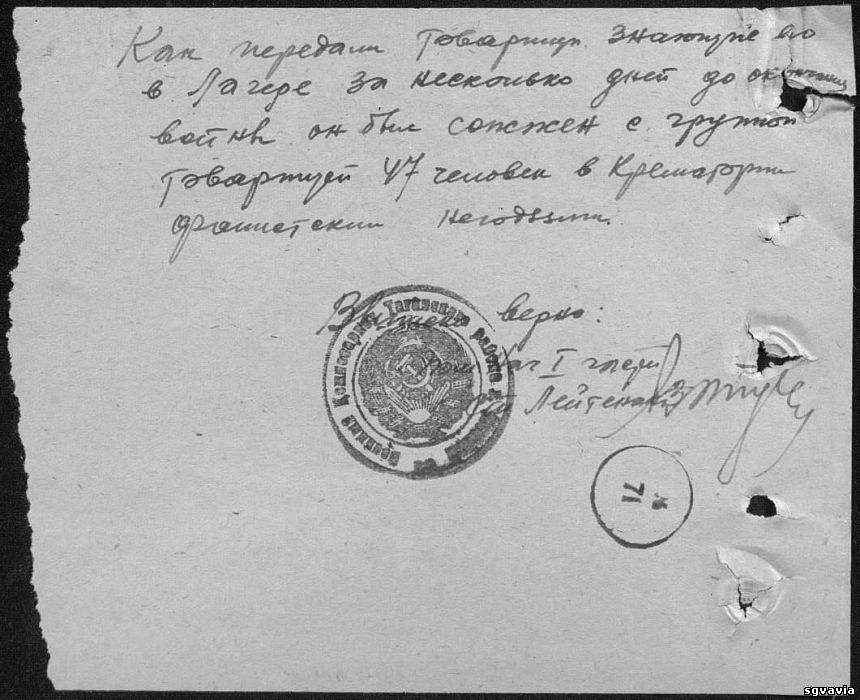 Как передали товарищи знающие его
в Лагере за несколько дней до окончания
войны он был сожжен с группой
товарищей 47 человек в Крематории
фашистскими негодяями.
Выписка верна:
Нач I части
ст Лейтенант
Военный Комиссариат Таганского района г.
№ 71
sgvavia